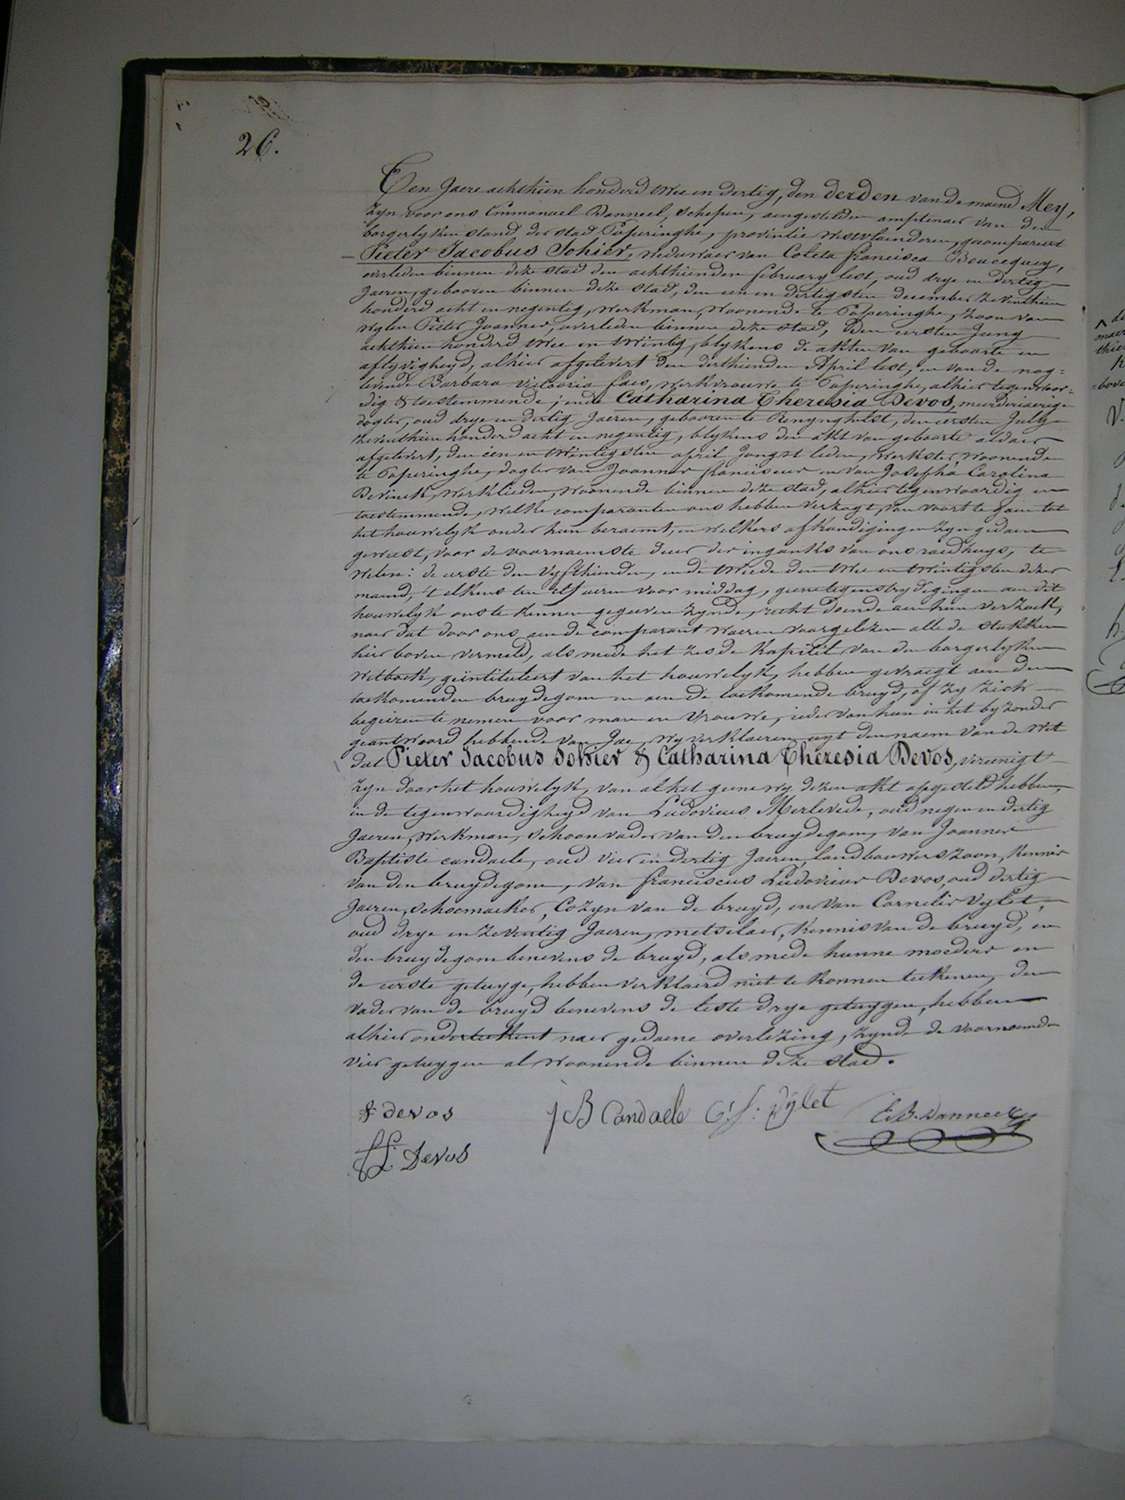 26.
Ten Jaere achthien honderd twee en dertig, den derden van de maend Mey,
zyn voor ons Emmanuel Danneel, schepen, aengestelden amptenaer van den
borgerlyken stand der stad Poperinghe, provintie westvlaenderen, gecompareert
Pieter Jacobus Sohier, weduwaer van Coleta francisca Boucequey,
overleden binnen deze stad den achthienden february lest, oud drye en dertig
Jaeren, gebooren binnen deze stad, den een en dertigsten december zeventhien
honderd acht en negentig, werkman, woonende te Poperinghe, zoon van
wylen Pieter Joannes, overleden binnen deze stad, den eersten Juny
achthien honderd twee en twintig, blykens de akten van geboorte en
aflyvigheyd, alhier afgelevert den derthienden April lest, en van de nog-
levende Barbara Victoria faes, werkvrouwe te Poperinghe, alhier tegenwoor-
dig & toestemmende; ende Catharina Theresia Devos, meerderjaerige
dogter, oud drye en dertig Jaeren, gebooren te Renynghelst, den eersten July
zeventhien honderd acht en negentig, blykens den akt van geboorte aldaer
afgelevert, den een en twintigsten april jongst leden, werkster, woonende
te Poperinghe, dogter van Joannes franciscus en van Josepha Carolina
Devinck, werklieden, woonende binnen deze stad, alhier tegenwoordig en
toestemmende, welke comparanten ons hebben verzogt, van voort te gaen tot
het houwelyk onder hun beraemt, en welkers afkondigingen zyn gedaen
geweest, voor de voornaemste deur der ingank van ons raedhuys, te
weten: de eerste den vyfthienden, en de tweede den twee en twintigsten dezer
maend, 't elkens ten elf ueren voor middag, geene tegenstrydigingen aen dit
houwelyk ons te kennen gegeven zynde, recht doende aen hun verzoek,
naer dat door ons, aen de comparant waeren voorgelezen alle de stukken
hier boven vermeld, als mede het zesde kapittel van den borgerlyken
wetboek, geintituleert van het houwelyk, hebben gevraegt aen den
toekomenden bruydegom en aen de toekomende bruyd, of zy zich
begeeren te nemen voor man en vrouwe, ieder van hun in het byzonder
geantwoord hebbende van Jae, wy verklaeren uyt den naem van de wet
dat Pieter Jacobus Sohier & Catharina Theresia Devos, vereenigt
zyn door het houwelyk, van al het gene wy dezen akt opgesteld hebben,
in de tegenwoordigheyd van Ludovicus Merlevede, oud negen en dertig
Jaeren, werkman, schoonvader van den bruydegom, van Joannes
Baptiste candaele, oud vier en dertig Jaeren, landbouwers zoon, kennis
van den bruydegom, van franciscus Ludovicus Devos, oud dertig
Jaeren, schoenmaeker, Cozyn van de bruyd, en van Cornelis Vylet,
oud drye en zeventig Jaeren, metselaer, kennis van de bruyd, en
den bruydegom benevens de bruyd, als mede hunne moeders en
de eerste getuyge, hebben verklaerd niet te konnen teekenen, den
vader van de bruyd benevens de leste drye getuygen, hebben
alhier onderteekent naer gedaene overlezing, zynde de voornoemde
vier getuygen al woonende binnen deze stad.
f devos
JB Candaele
C: f: Vylet
E. B. Danneel
f L: Devos